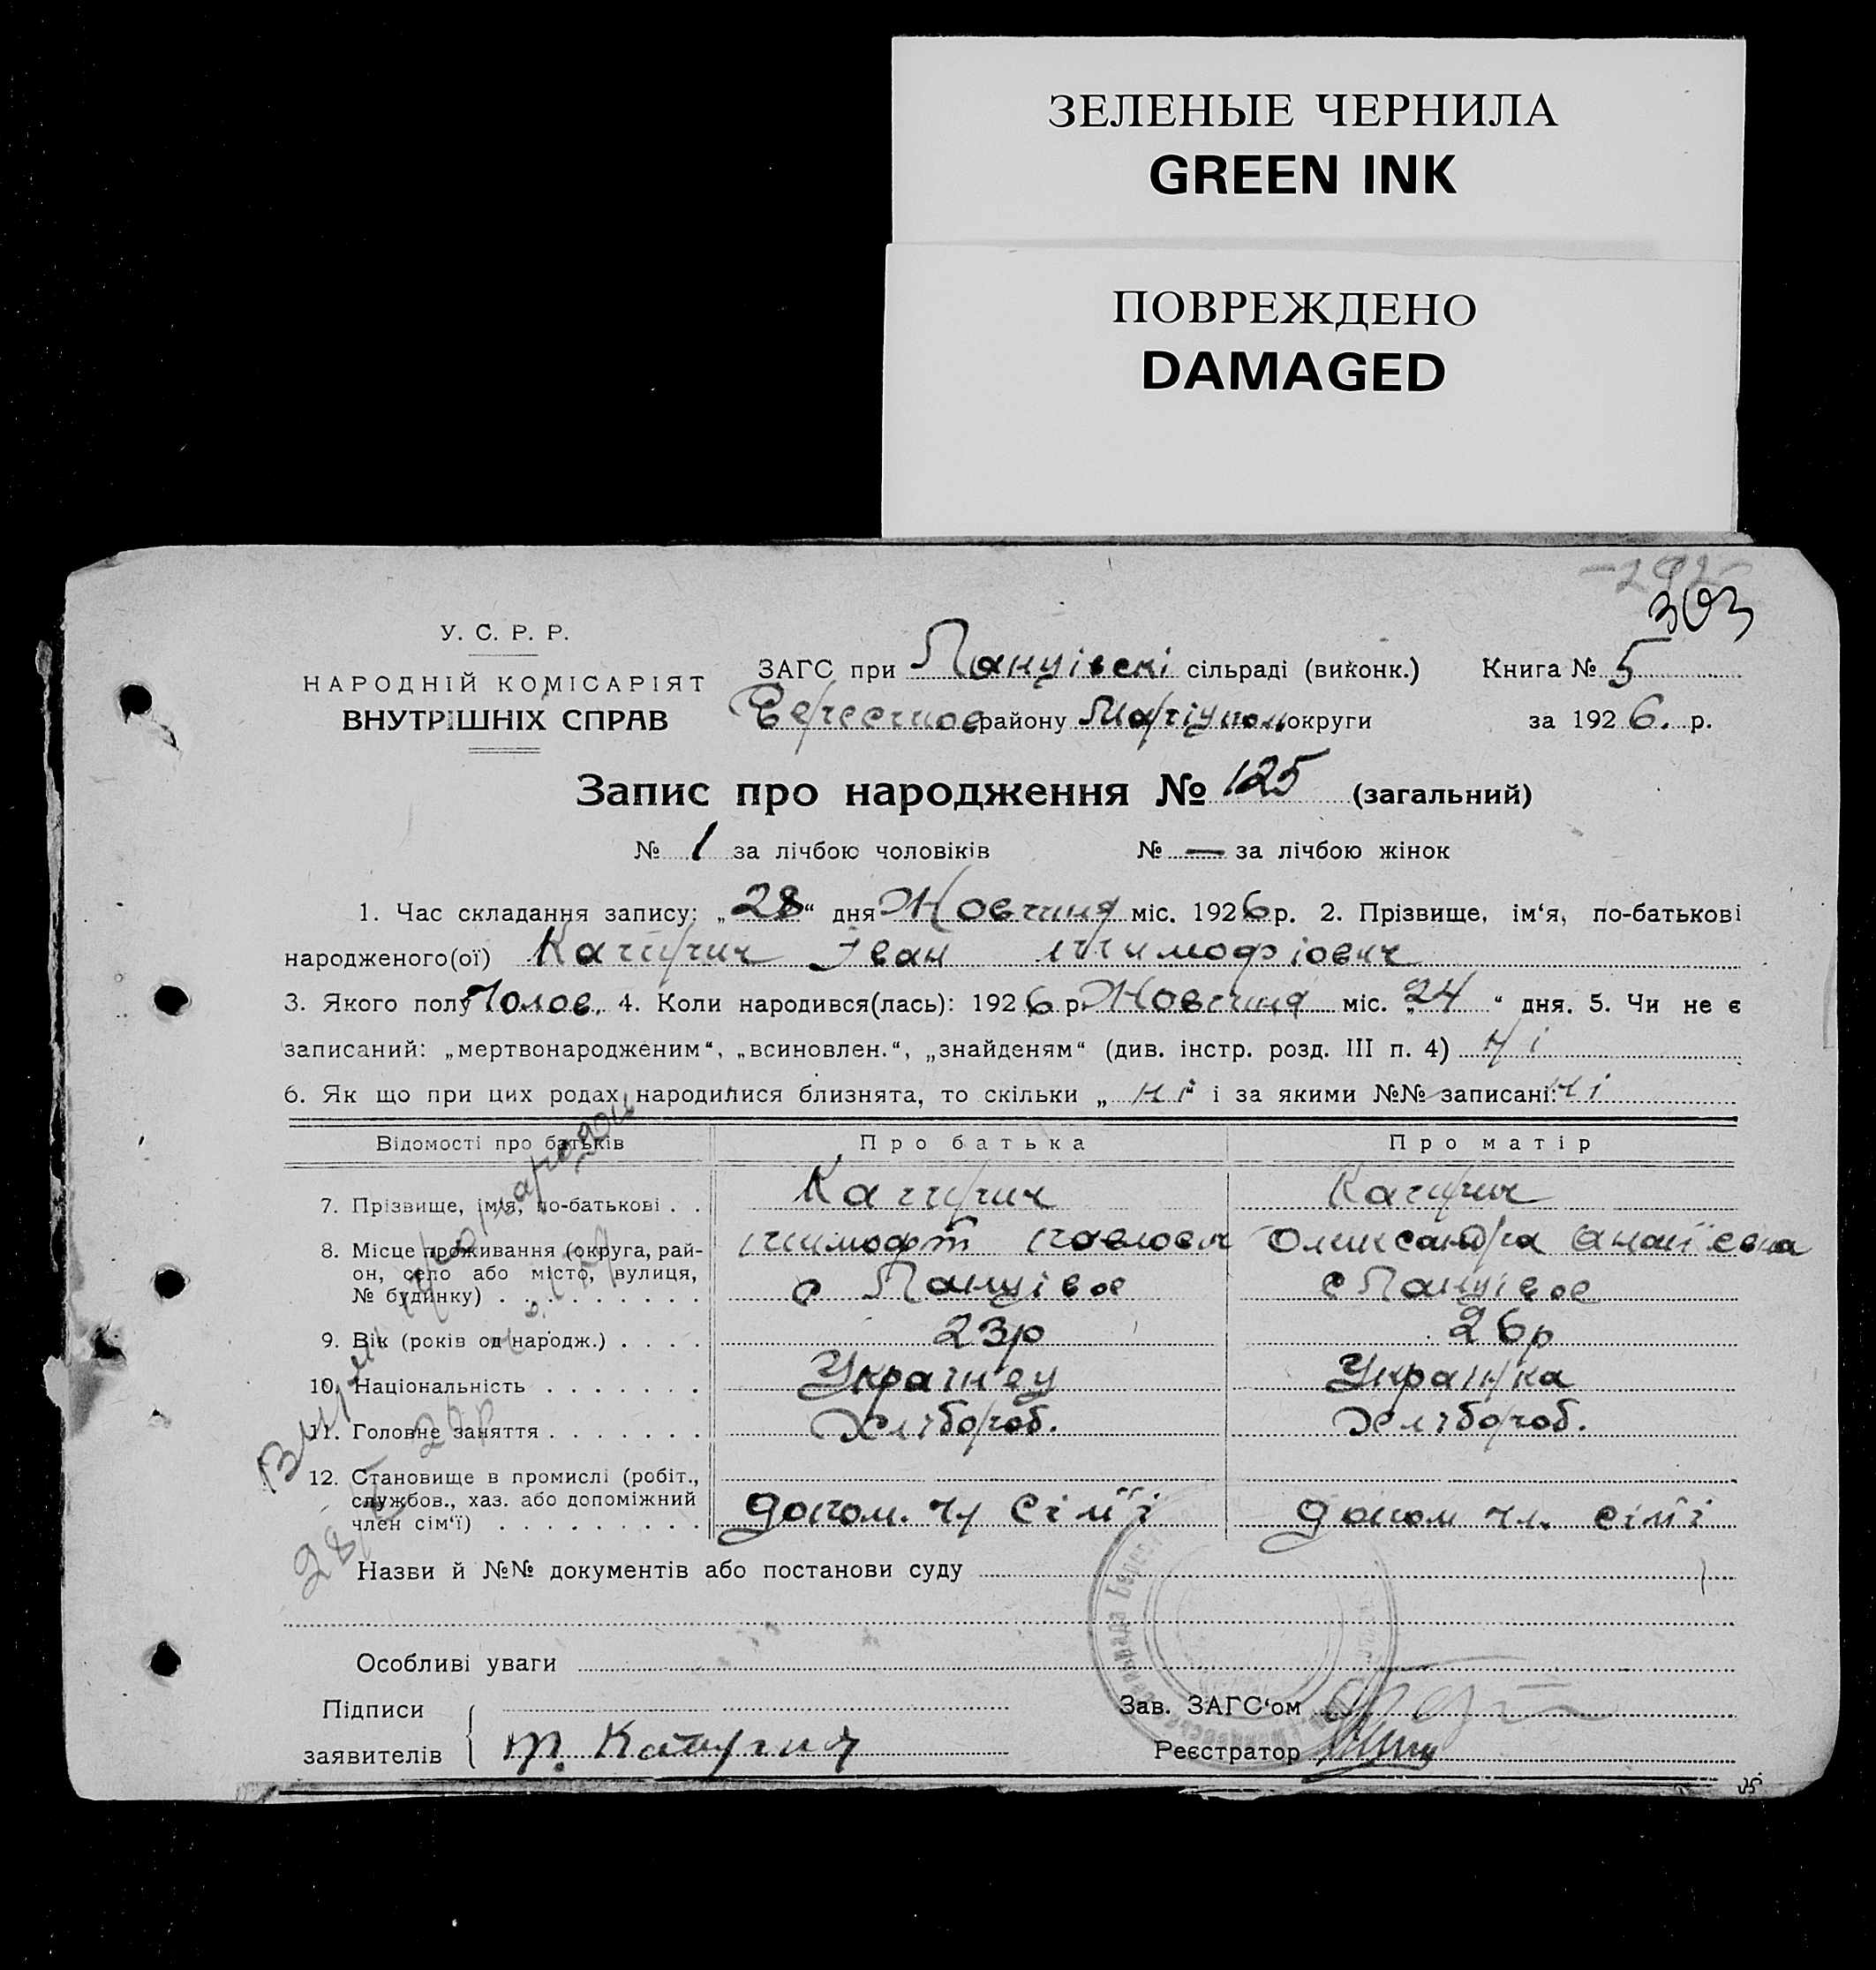 ЗЕЛЕНЫЕ ЧЕРНИЛА
GREEN INK
ПОВРЕЖДЕНО
DAMAGED
-292-
303
У. С. Р. Р.
НАРОДНІЙ КОМІСАРІЯТ
ВНУТРІШНІХ СПРАВ
ЗАГС при Панцівскі сільраді (виконк.) Книга № 5
району Маріупол округи за 1926. р.
Запис про народження № 125 (загальний)
№ 1 за лічбою чоловіків № — за лічбою жінок
1. Час складання запису: „28“ дня Жовтня міс. 1926 р. 2. Прізвище, ім‘я, по-батькові
народженого(ої) Катрич Іван Тимофіович
3. Якого полу Чолов. 4. Коли народився(лась): 1926 р. Жовтня міс. „24“ дня. 5. Чи не є
записаний: „мертвонародженим“, „всиновлен.“, „знайденям“ (див. інстр. розд. III п. 4) Ні
6. Як що при цих родах народилися близнята, то скільки „ ні “ і за якими №№ записані: ні
Відомості про батьків Про батька Про матір
7. Прізвище, імя, по-батькові . . Катрич Катрич
Тимофій Павлович Олександра Ананієвна
8. Місце проживання (округа, район, село або місто, вулиця, № будинку) с Панцівое с Панцівое
9. Вік (років од народж.) . . . . 23р 26р
10. Національність . . . . . . . Українец Українка
11. Головне заняття . . . . . . . Хлібороб. Хлібороб.
12. Становище в промислі (робіт., службов., хаз. або допоміжний член сім‘ї) . . . . . . . . . Допом. чл сімїі Допом чл. сімїі
Назви й №№ документів або постанови суду
Особливі уваги
Підписи
заявителів Т. Катрич
Зав. ЗАГС‘ом
Реєстратор